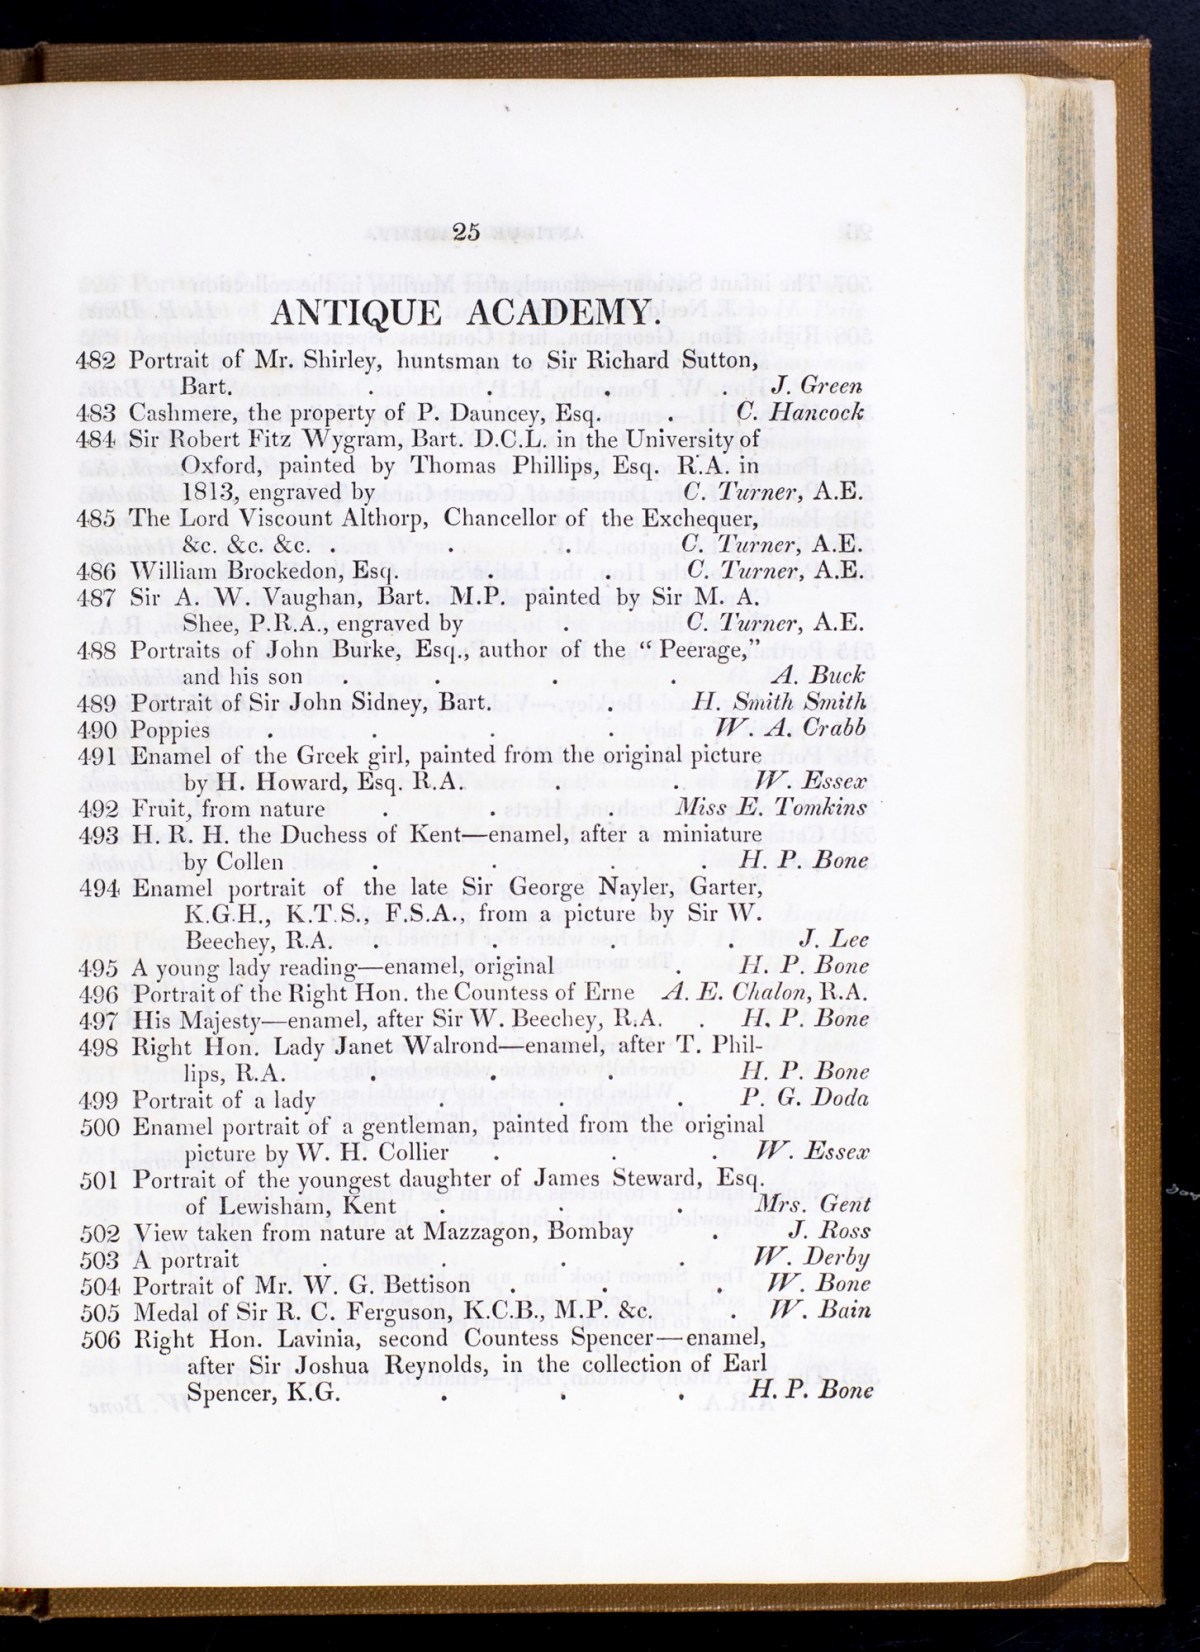 25
ANTIQUE ACADEMY.
482 Portrait of Mr. Shirley, huntsman to Sir Richard Sutton,
Bart. . . . . J. Green
483 Cashmere, the property of P. Dauncey, Esq. . C. Hancock
484 Sir Robert Fitz Wygram, Bart. D.C.L. in the University of
Oxford, painted by Thomas Phillips, Esq. R.A. in
1813, engraved by C. Turner, A.E.
485 The Lord Viscount Althorp, Chancellor of the Exchequer,
&c. &c. &c. . . . C. Turner, A.E.
486 William Brockedon, Esq. . . C. Turner, A.E.
487 Sir A. W. Vaughan, Bart. M.P. painted by Sir M. A.
Shee, P.R.A., engraved by . C. Turner, A.E.
488 Portraits of John Burke, Esq., author of the “Peerage,”
and his son . . . A. Buck
489 Portrait of Sir John Sidney, Bart. . H. Smith Smith
490 Poppies . . . . W. A. Crabb
491 Enamel of the Greek girl, painted from the original picture
by H. Howard, Esq. R.A. . . W. Essex
492 Fruit, from nature . . . Miss E. Tomkins
493 H. R. H. the Duchess of Kent—enamel, after a miniature
by Collen . . . . H. P. Bone
494 Enamel portrait of the late Sir George Nayler, Garter,
K.G.H., K.T.S., F.S.A., from a picture by Sir W.
Beechey, R.A. . . . . J. Lee
495 A young lady reading—enamel, original . H. P. Bone
496 Portrait of the Right Hon. the Countess of Erne A. E. Chalon, R.A.
497 His Majesty—enamel, after Sir W. Beechey, R.A. . H. P. Bone
498 Right Hon. Lady Janet Walrond—enamel, after T. Phil-
lips, R.A. . . . H. P. Bone
499 Portrait of a lady . . . P. G. Doda
500 Enamel portrait of a gentleman, painted from the original
picture by W. H. Collier . . . W. Essex
501 Portrait of the youngest daughter of James Steward, Esq.
of Lewisham, Kent . . . Mrs. Gent
502 View taken from nature at Mazzagon, Bombay . J. Ross
503 A portrait . . . . W. Derby
504 Portrait of Mr. W. G. Bettison . . . W. Bone
505 Medal of Sir R. C. Ferguson, K.C.B., M.P. &c. . W. Bain
506 Right Hon. Lavinia, second Countess Spencer—enamel,
after Sir Joshua Reynolds, in the collection of Earl
Spencer, K.G. . . . H. P. Bone